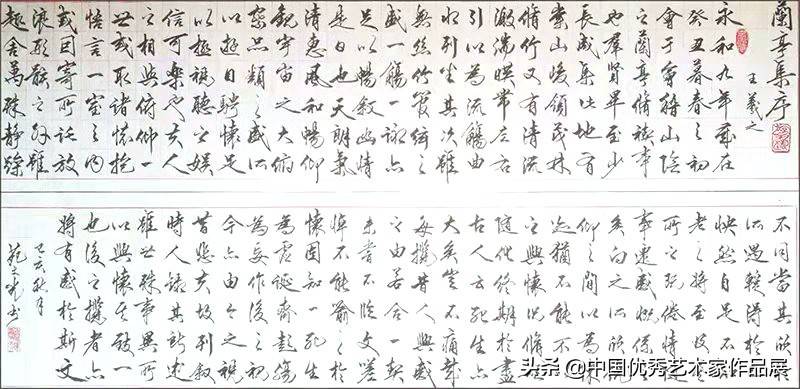 蘭亭集序
王羲之
永和九年歲在
癸丑暮春之初
會于會稽山陰
之蘭亭脩禊事
也群賢畢至少
長咸集此地有
崇山峻領茂林
脩竹又有清流
激湍暎帶左右
引以為流觴曲
水列坐其次雖
無絲竹管絃之
盛一觴一詠亦
足以暢敘幽情
是日也天朗氣
清惠風和暢仰
觀宇宙之大俯
察品類之盛所
以遊目騁懷足
以極視聽之娛
信可樂也夫人
之相與俯仰一
世或取諸懷抱
悟言一室之內
或因寄所託放
浪形骸之外雖
趣舍萬殊靜躁
不同當其欣於
所遇蹔得於己
快然自足不知
老之將至及其
所之既倦情隨
事遷感慨係之
矣向之所欣俛
仰之間以為陳
迹猶不能不以
之興懷況脩短
隨化終期於盡
古人云死生亦
大矣豈不痛哉
每攬昔人興感
之由若合一契
未嘗不臨文嗟
悼不能喻之於
懷固知一死生
為虛誕齊彭殤
為妄作後之視
今亦由今之視
昔悲夫故列敘
時人錄其所述
雖世殊事異所
以興懷其致一
也後之攬者亦
將有感於斯文
己亥秋月
头条 @中国优秀艺术家作品展